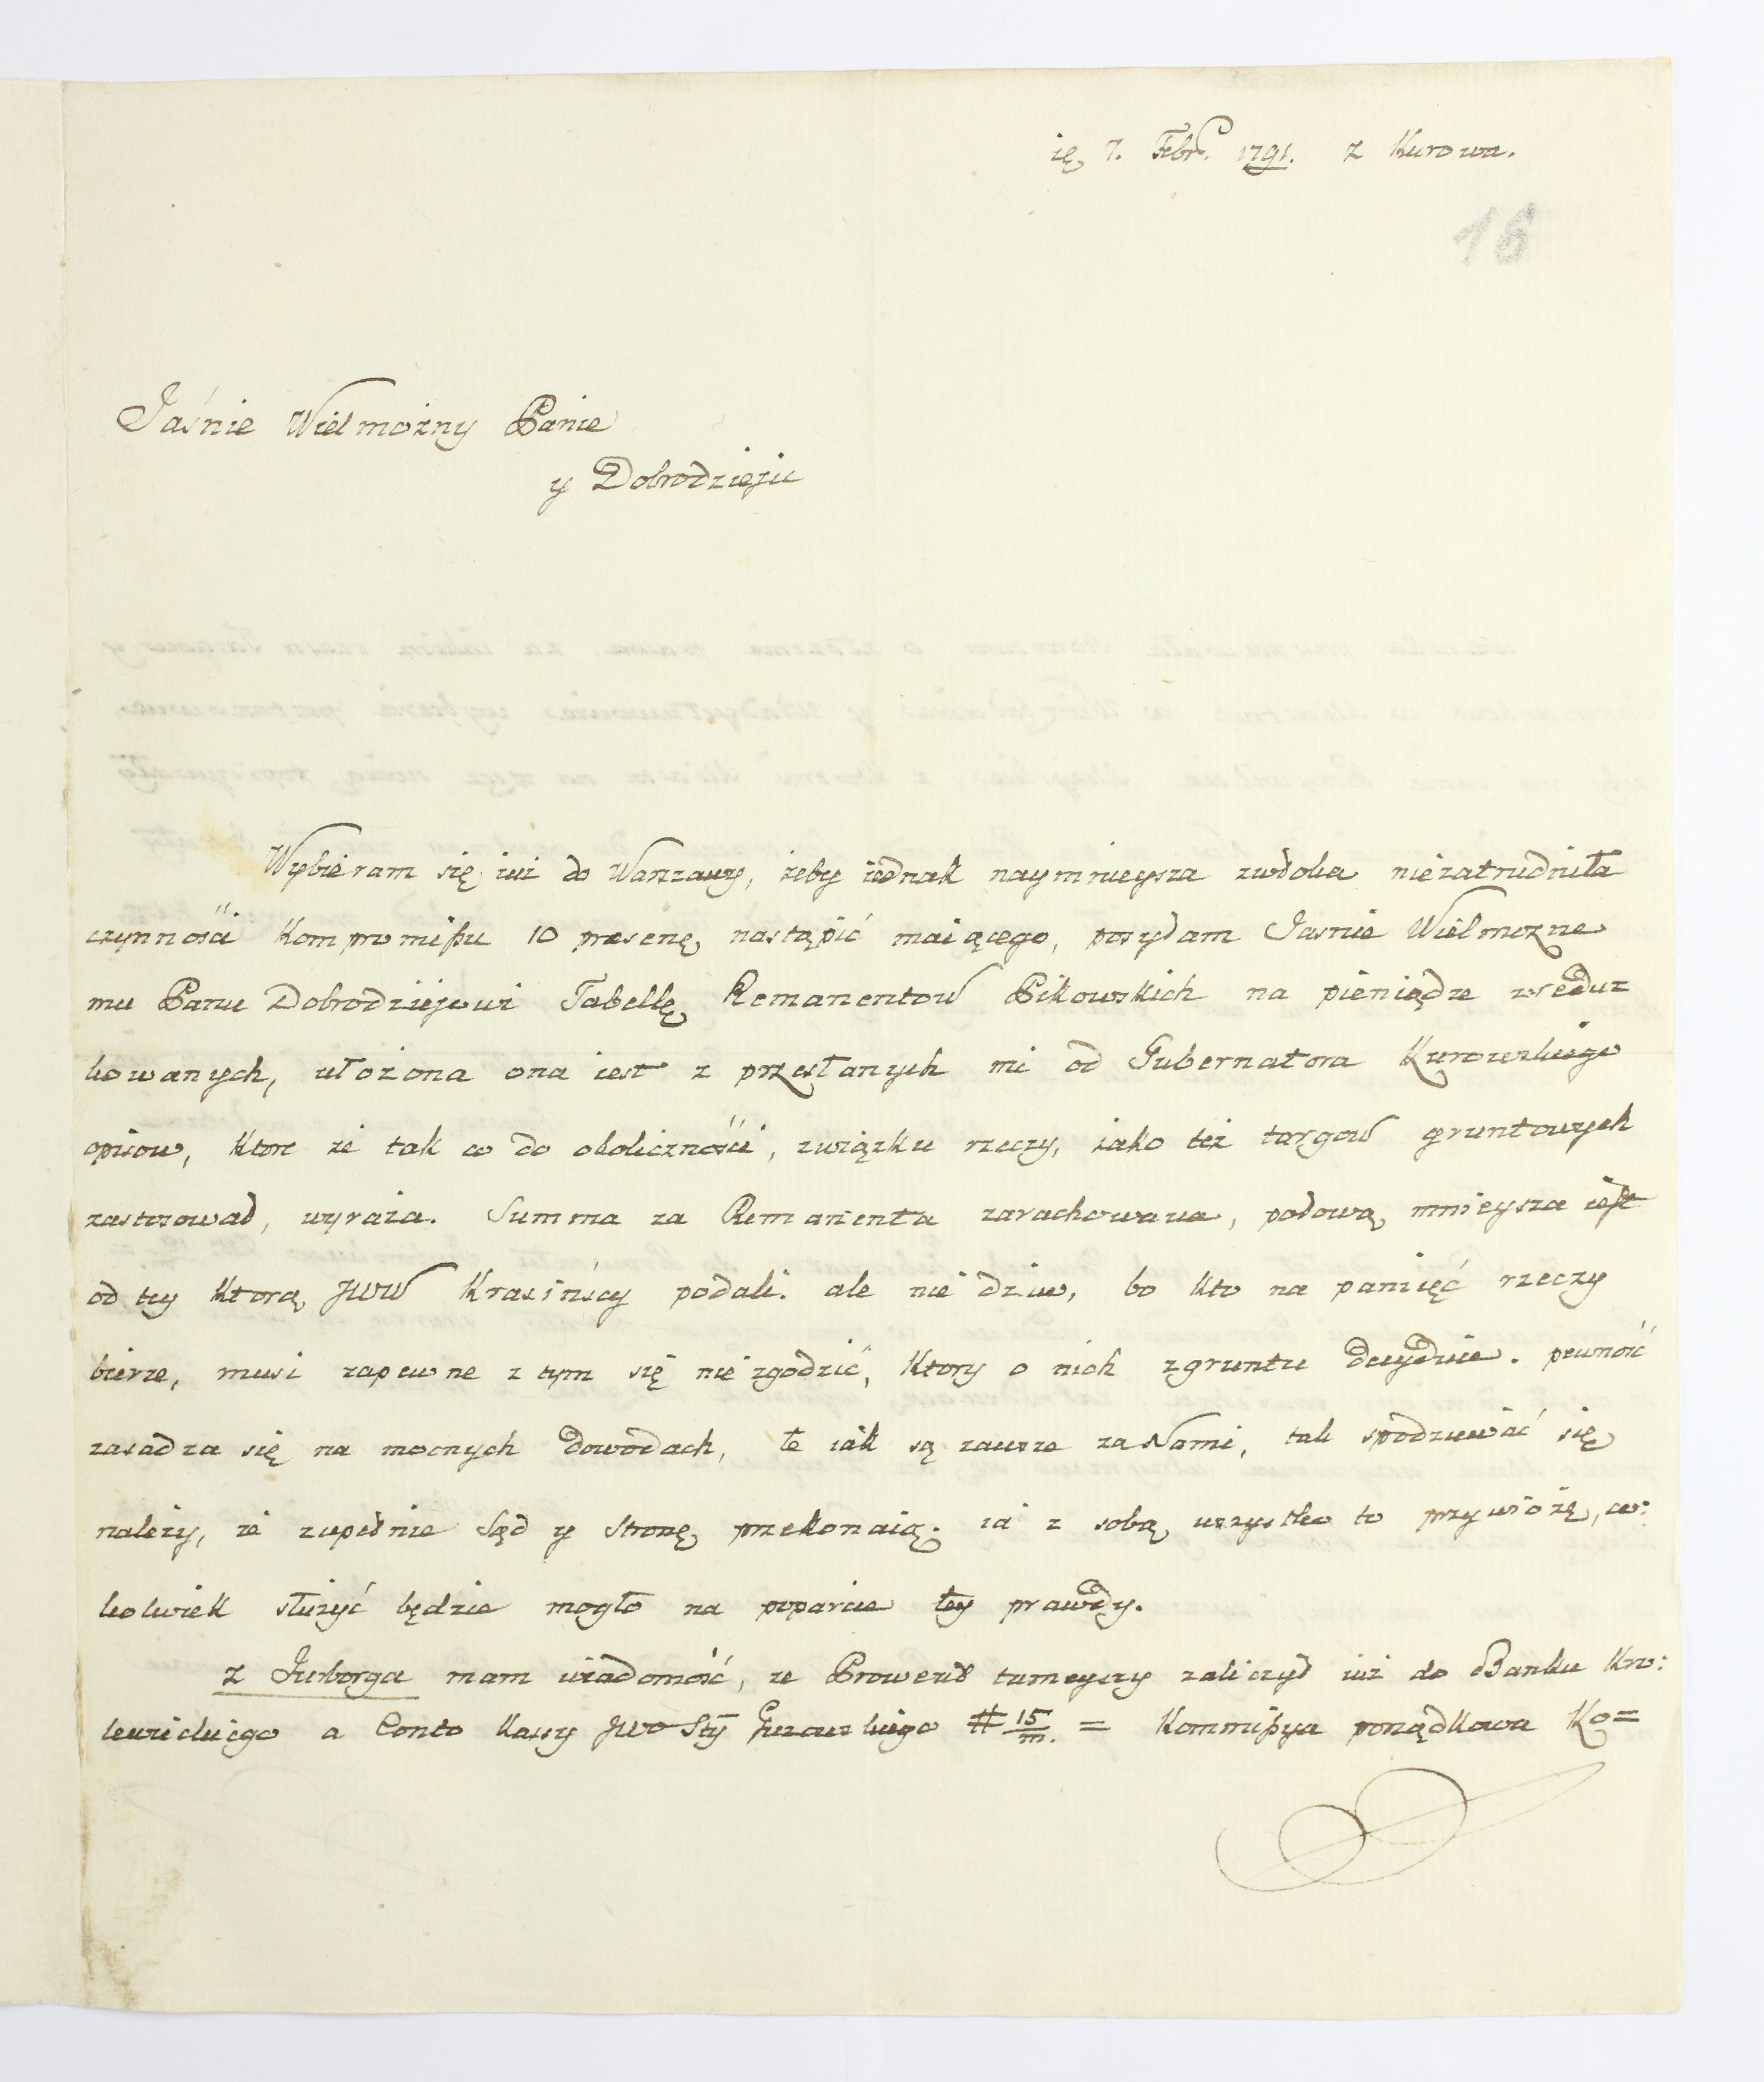 7. Febr. 1791. z Kurowa.
16
Jaśnie Wielmożny Panie
y Dobrodzieju
Wybieram się iuż do Warszawy, żeby iednak naymnieysza zwłoka niezatrudniła
czynności Kompromißu 10 præsenę nastąpić maiącego, posyłam Jasnie Wielmozne
mu Panu Dobrodziejowi Tabellę Remanentow Pikowskich na pieniądze zreduz
kowanych, ułożona ona iest z przesłanych mi od Gubernatora Kurowskiego
opisow, ktore że tak co do okoliczności, związku rzeczy, iako też targow gruntowych
zastosował, wyraża. Summa za Remanenta zarachowana, połową mnieysza iest
od tey ktorą JWW Krasińscy podali. ale nie dziw, bo kto na pamięć rzeczy
bierze, musi zapewne z tym się nie zgodzić, ktory o nich zgruntu decyduie. pewność
zasadza się na mocnych dowodach, te iak są zawsze za Nami, tak spodziewać się
należy, że zupełnie Sąd y Stronę przekonaią. ia z sobą wszystko to przywiozę, co:
kolwiek służyć będzie mogło na poparcie tey prawdy.
z Jurborga mam wiadomość, że Prowent tameyszy zaliczył iuż do Banku Kro:
lewickiego a Conto Kassy JWo Sty # 15/m. = Kommißya porządkowa Ko=